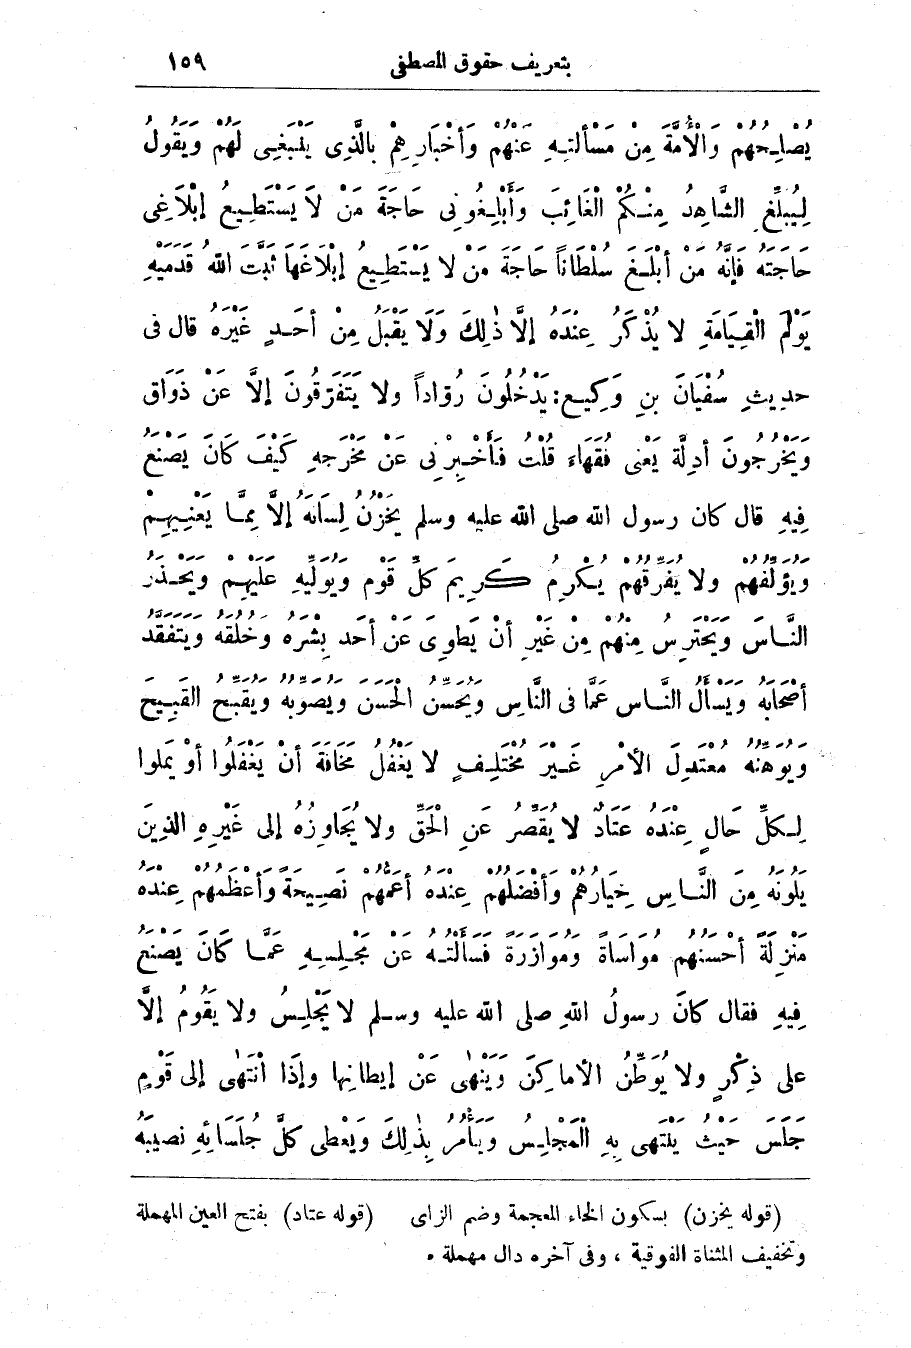 بتعريف حقوق المصطفى ١٥٩
يُصْلِحُهُمْ وَالْأُمَّةَ مِنْ مَسْأَلَتِهِ عَنْهُمْ وَأَخْبَارِهِمْ بِالَّذِى يَنْبَغِى لَهُمْ وَيَقُولُ
لِيُبَلِّغِ الشَّاهِدُ مِنْكُمُ الْغَائِبَ وَأَبْلِغُونِى حَاجَةَ مَنْ لَا يَسْتَطِيعُ إِبْلَاغِى
حَاجَتَهُ فَإِنَّهُ مَنْ أَبْلَغَ سُلْطَاناً حَاجَةَ مَنْ لا يَسْتَطِيعُ إِبْلَاغَهَا ثَبَّتَ اللهُ قَدَمَيْهِ
يَوْمَ الْقِيَامَةِ لا يُذْكَرُ عِنْدَهُ إِلَّا ذٰلِكَ وَلَا يَقْبَلُ مِنْ أَحَدٍ غَيْرَهُ قال فى
حديثِ سُفْيَانَ بنِ وَكِيعٍ: يَدْخُلُونَ رُوَّاداً ولا يَتَفَرَّقُونَ إِلَّا عَنْ ذَوَاق
وَيَخْرُجُونَ أدِلَّة يَعْنِى فُقَهَاءَ قُلْتُ فَأَخْبِرْنِى عَنْ مَخْرَجِهِ كَيْفَ كَانَ يَصْنَعُ
فِيهِ قال كان رسول الله صلى الله عليه وسلم يَخْزُنُ لِسَانَهُ إِلَّا مِمَّا يَعْنِيهِمْ
وَيُؤَلِّفُهُمْ ولا يُفَرِّقُهُمْ يُكْرِمُ كَرِيمَ كلِّ قَوْمٍ وَيُوَلِّيهِ عَلَيْهِمْ وَيَحْذَرُ
النَّاسَ وَيَحْتَرِسُ مِنْهُمْ مِنْ غَيْرِ أَنْ يَطْوِىَ عَنْ أَحَدٍ بِشْرَهُ وَخُلُقَهُ وَيَتَفَقَّدُ
أَصْحَابَهُ وَيَسْأَلُ النَّاسَ عَمَّا فى النَّاسِ وَيُحَسِّنُ الْحَسَنَ وَيُصَوِّبُهُ وَيُقَبِّحُ القَبِيحَ
وَيُوَهِّنُهُ مُعْتَدِلَ الأَمْرِ غَيْرَ مُخْتَلِفٍ لا يَغْفُلُ مَخَافَةَ أَنْ يَغْفُلُوا أَوْ يَمَلُّوا
لِكلِّ حَالٍ عِنْدَهُ عَتَادٌ لا يُقَصِّرُ عَنِ الْحَقِّ ولا يُجَاوِزُهُ إلى غَيْرِهِ الذِينَ
يَلُونَهُ مِنَ النَّاسِ خِيَارُهُمْ وَأَفْضَلُهُمْ عِنْدَهُ أَعَمُّهُمْ نَصِيحَةً وَأَعْظَمُهُمْ عِنْدَهُ
مَنْزِلَةً أَحْسَنُهُم مُوَاسَاةً وَمُوَازَرَةً فَسَأَلْتُهُ عَنْ مَجْلِسِهِ عَمَّا كَانَ يَصْنَعُ
فِيهِ فقال كانَ رسولُ اللهِ صلى الله عليه وسلم لا يَجْلِسُ ولا يَقُومُ إِلَّا
على ذِكْرٍ ولا يُوَطِّنُ الأماكِنَ وَيَنْهٰى عَنْ إيطانِها وإِذَا انْتَهٰى إلى قَوْمٍ
جَلَسَ حَيْثُ يَنْتَهِى بِهِ الْمَجْلِسُ وَيَأْمُرُ بِذٰلِكَ وَيُعْطِى كلَّ جُلَسَائِهِ نَصِيبَهُ
(قوله يخزن) بسكون الخاء المعجمة وضم الزاى (قوله عتاد) بفتح العين المهملة
وتخفيف المثناة الفوقية ، وفى آخره دال مهملة .